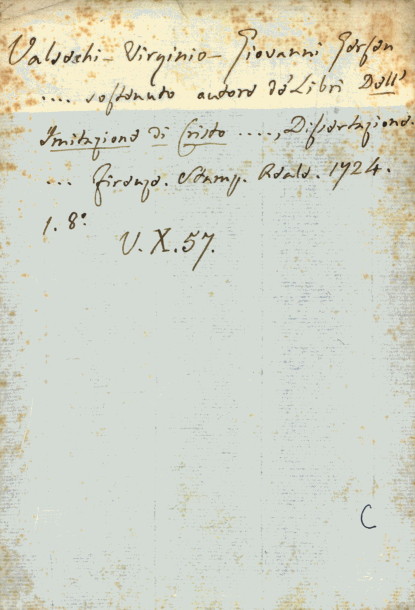 Valsechi - Virginio - Giovanni Gersen
.... sostenuto autore de' Libri Dell'
Imitazione di Cristo ....., Dissertazione.
... Firenze. Stamp. Reale. 1724.
1. 8.°
V. X. 57.
C